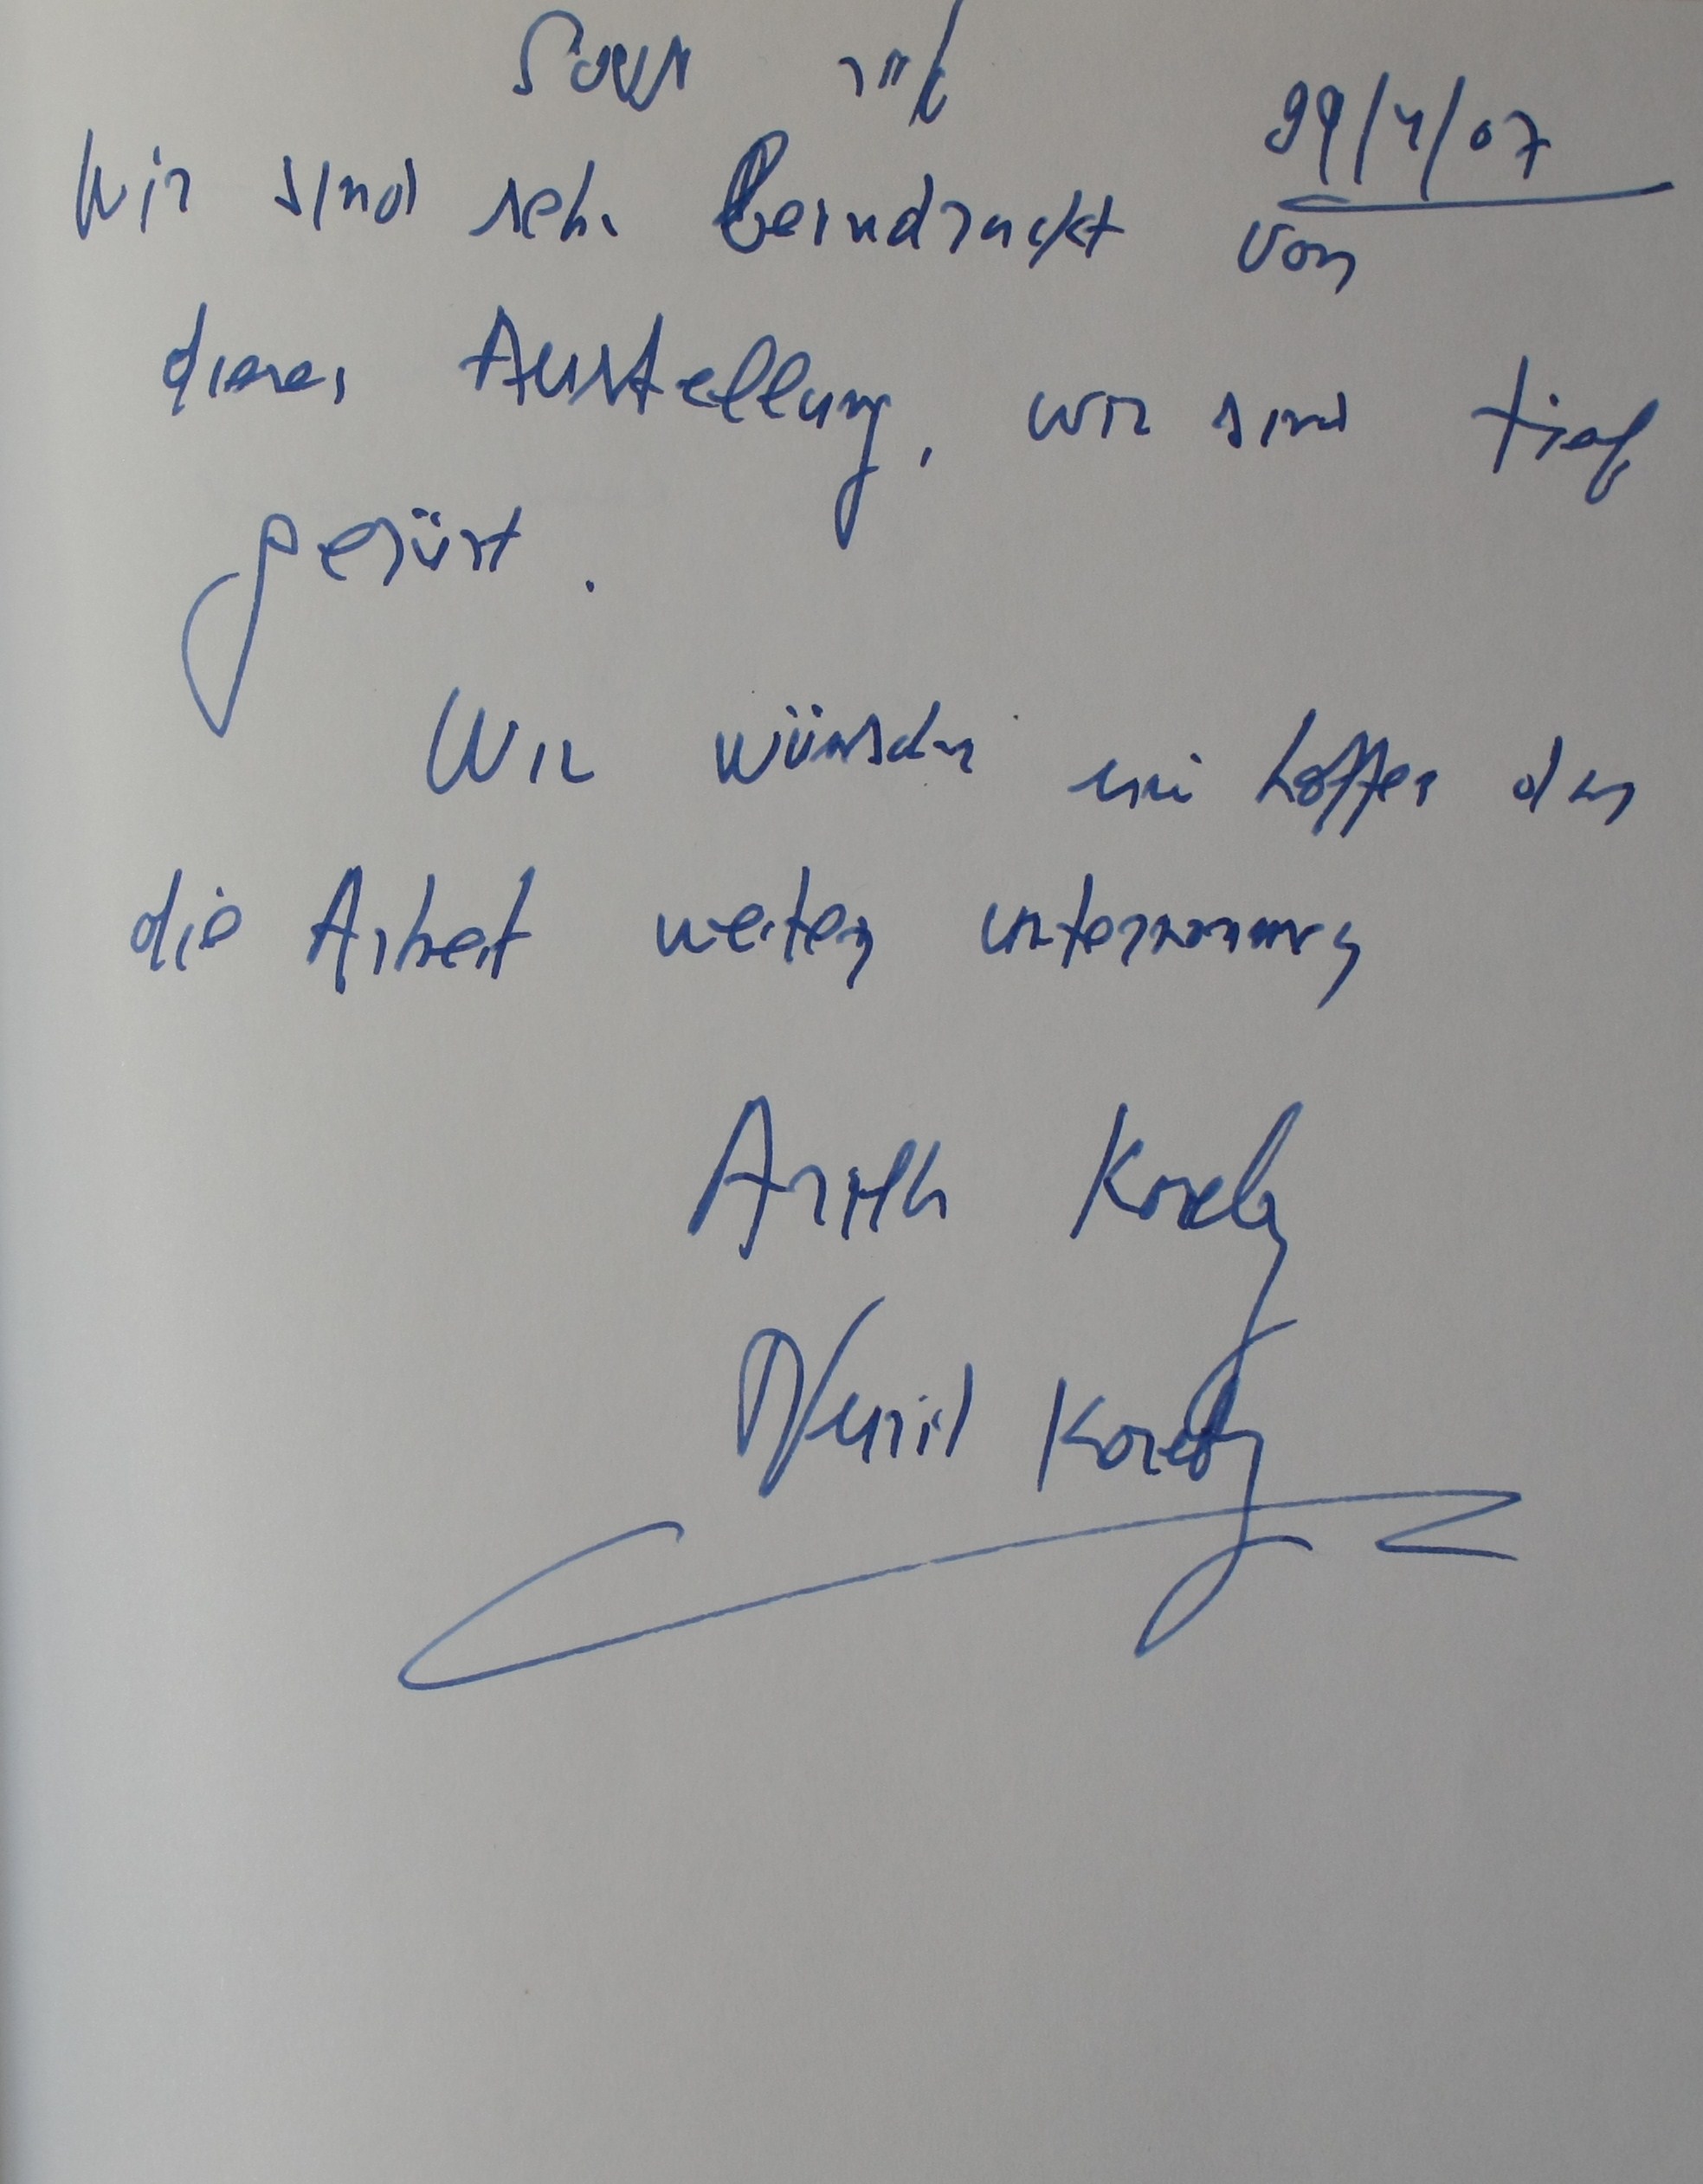 29/4/07
Wir sind sehr beindruckt von
dieser Austellung, wir sind tief
gerürt.
Wir wünschen und hoffen das
die Arbeit weiter
Koretz
Nurit Koretz